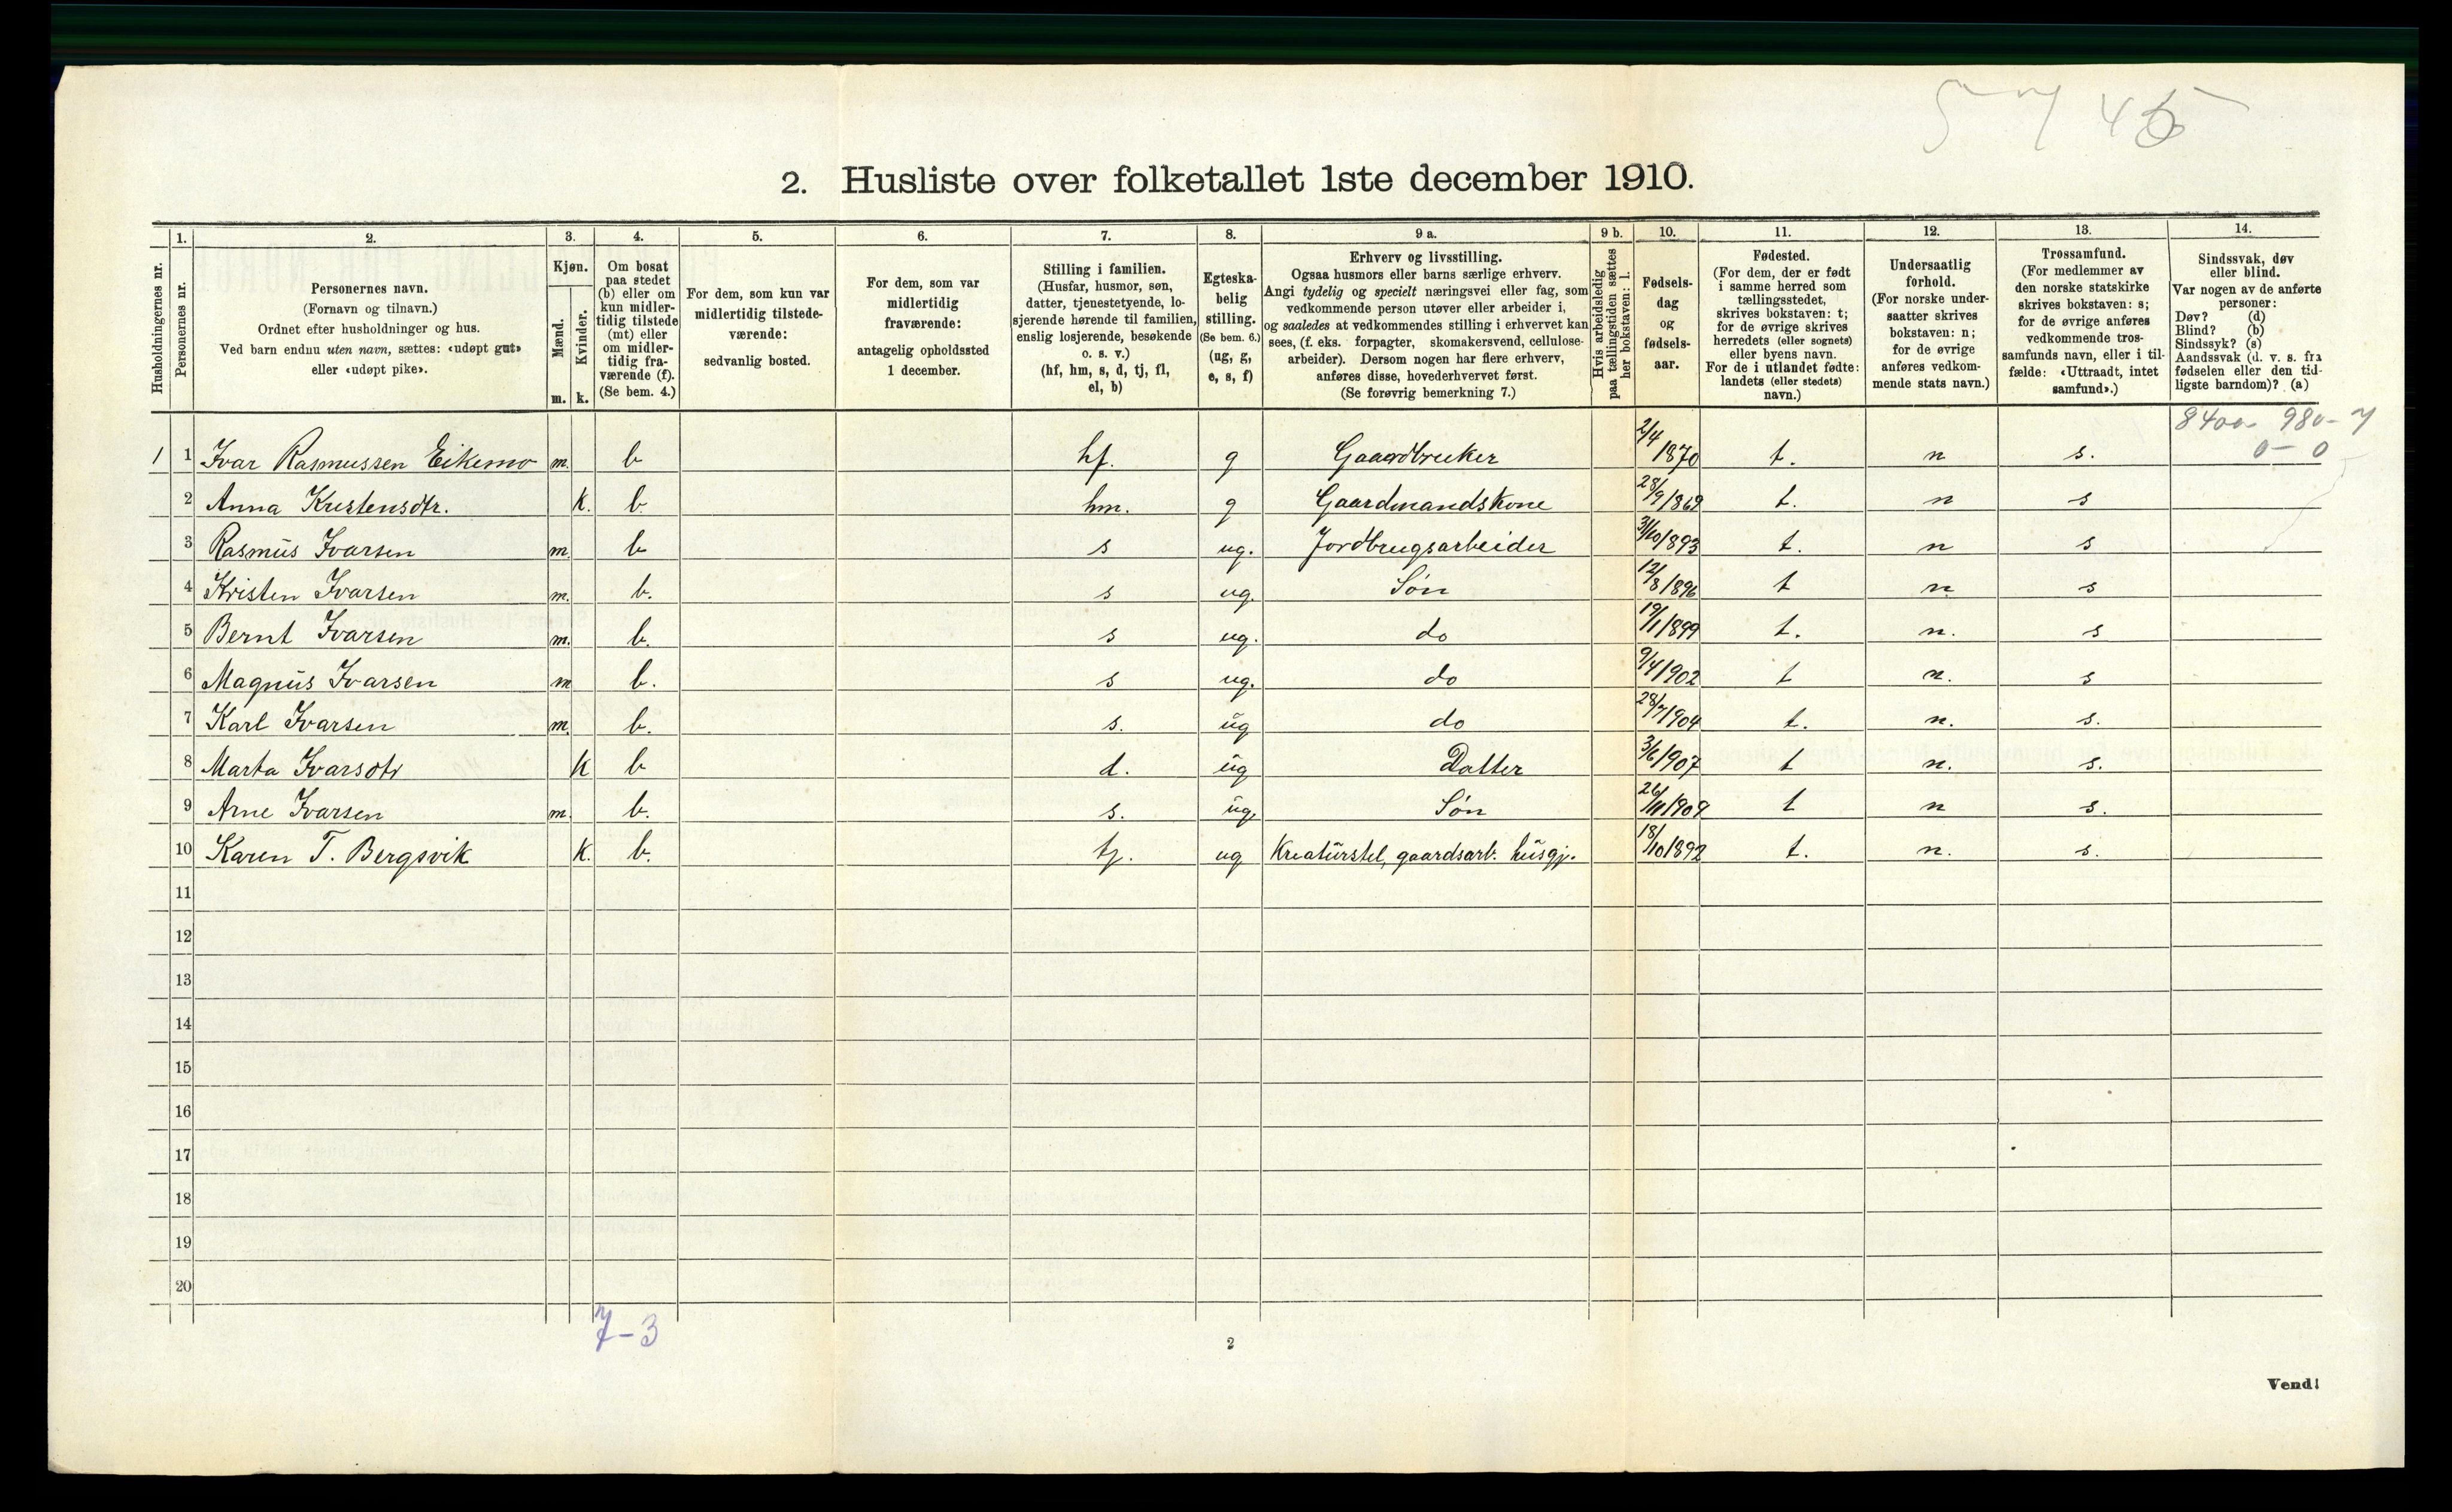 5 7 45
2. Husliste over folketallet 1ste december 1910.
Husholdningernes nr.
1.
Personernes nr.
2.
Personernes navn.
(Fornavn og tilnavn.)
Ordnet efter husholdninger og hus.
Ved barn endnu uten navn, sættes: «udøpt gut»
eller «udøpt pike».
3.
Kjøn.
Mænd.
Kvinder.
m. k.
4.
Om bosat
paa stedet
(b) eller om
kun midler-
tidig tilstede
(mt) eller
om midler-
tidig fra-
værende (f).
(Se bem. 4.)
5.
For dem, som kun var
midlertidig tilstede-
værende:
sedvanlig bosted.
6.
For dem, som var
midlertidig
fraværende:
antagelig opholdssted
1 december.
7.
Stilling i familien.
(Husfar, husmor, søn,
datter, tjenestetyende, lo-
sjerende hørende til familien,
enslig losjerende, besøkende
o. s. v.)
(hf, hm, s, d, tj, fl,
el, b)
8.
Egteska-
belig
stilling.
(Se bem. 6.)
(ug, g,
e, s, f)
9 a.
Erhverv og livsstilling.
Ogsaa husmors eller barns særlige erhverv.
Angi tydelig og specielt næringsvei eller fag, som
vedkommende person utøver eller arbeider i,
og saaledes at vedkommendes stilling i erhvervet kan
sees, (f. eks. forpagter, skomakersvend, cellulose-
arbeider). Dersom nogen har flere erhverv,
anføres disse, hovederhvervet først.
(Se forøvrig bemerkning 7.)
9 b.
Hvis arbeidsledig
paa tællingstiden sættes
her bokstaven: l.
10.
Fødsels-
dag
og
fødsels-
aar.
11.
Fødested.
(For dem, der er født
i samme herred som
tællingsstedet,
skrives bokstaven: t;
for de øvrige skrives
herredets (eller sognets)
eller byens navn.
For de i utlandet fødte:
landets (eller stedets)
navn.)
12.
Undersaatlig
forhold.
(For norske under-
saatter skrives
bokstaven: n;
for de øvrige
anføres vedkom-
mende stats navn.)
13.
Trossamfund.
(For medlemmer av
den norske statskirke
skrives bokstaven: s;
for de øvrige anføres
vedkommende tros-
samfunds navn, eller i til-
fælde: «Uttraadt, intet
samfund».)
14.
Sindssvak, døv
eller blind.
Var nogen av de anførte
personer:
Døv? (d)
Blind? (b)
Sindssyk? (s)
Aandssvak (d. v. s. fra
fødselen eller den tid-
ligste barndom)? (a)
8400- 980-7
0-0
1 1 Ivar Rasmussen Eikemo m. b hf. g Gaardbruker 2/4 1870 t. n s.
2 Anna Kristensdtr. k. b hm. g Gaardmandskone 28/9 1869 t. n s
3 Rasmus Ivarsen m. b s ug. Jordbrugsarbeider 31/10 1893 t. n s
4 Kristen Ivarsen m. b. s ug. Søn 12/8 1896 t n. s
5 Bernt Ivarsen m. b. s ug. do 19/1 1899 t. n. s
6 Magnus Ivarsen m b. s ug. do 9/4 1902 t n. s
7 Karl Ivarsen m. b. s. ug do 28/7 1904 t. n. s.
8 Marta Ivarsdtr k b d. ug Datter 3/6 1907 t n. s.
9 Arne Ivarsen m. b. s. ug. Søn 26/11 1909 t n s.
10 Karen T. Bergsvik k. b. tj. ug Kreaturstel, gaardsarb. husgj. 18/10 1892 t. n. s.
11
12
13
14
15
16
17
18
19
20
7-3
2
Vend!